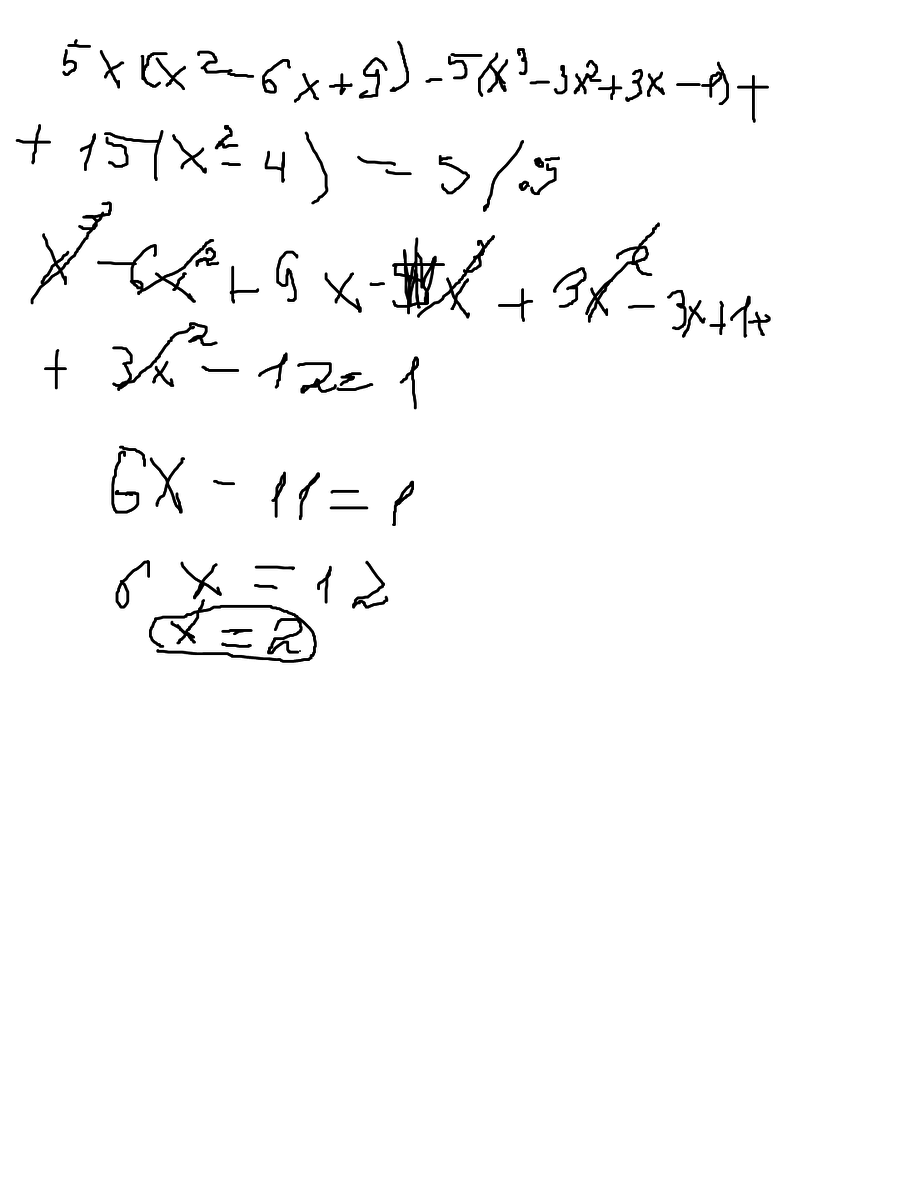 5x(x²-6x+9)-5(x³-3x²+3x-1)+
+ 15(x²-4) = 5 /:5
x³-6x²+9x-x³+3x²-3x+1+
+ 3x²-12=1
6x-11=1
6x=12
x=2